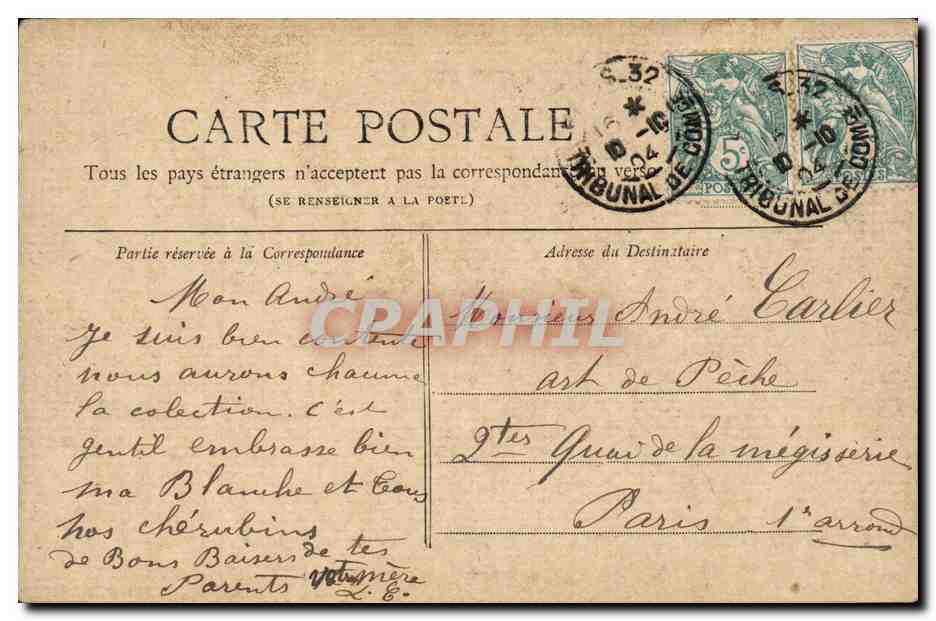 CARTE POSTALE
Tous les pays étrangers n'acceptent pas la correspondance en verso
(SE RENSEIGNER A LA POSTE)
Partie réservée à la Correspondance
Mon André
Je suis bien contente
nous aurons chacune
la colection. c'est
gentil embrasse bien
ma Blanche et tous
nos chérubins
de Bons Baisers de tes
Parents votre mère
L. C.
Adresse du Destinataire
Monsieur André Carlier
art de Pêche
2ter Quai de la mégisserie
Paris 1r arrond
S_32
16 -10
04
TRIBUNAL DE COMCE
5c
POSTES
S_32
-10
04
TRIBUNAL DE COMCE
POSTES
CPAPHIL